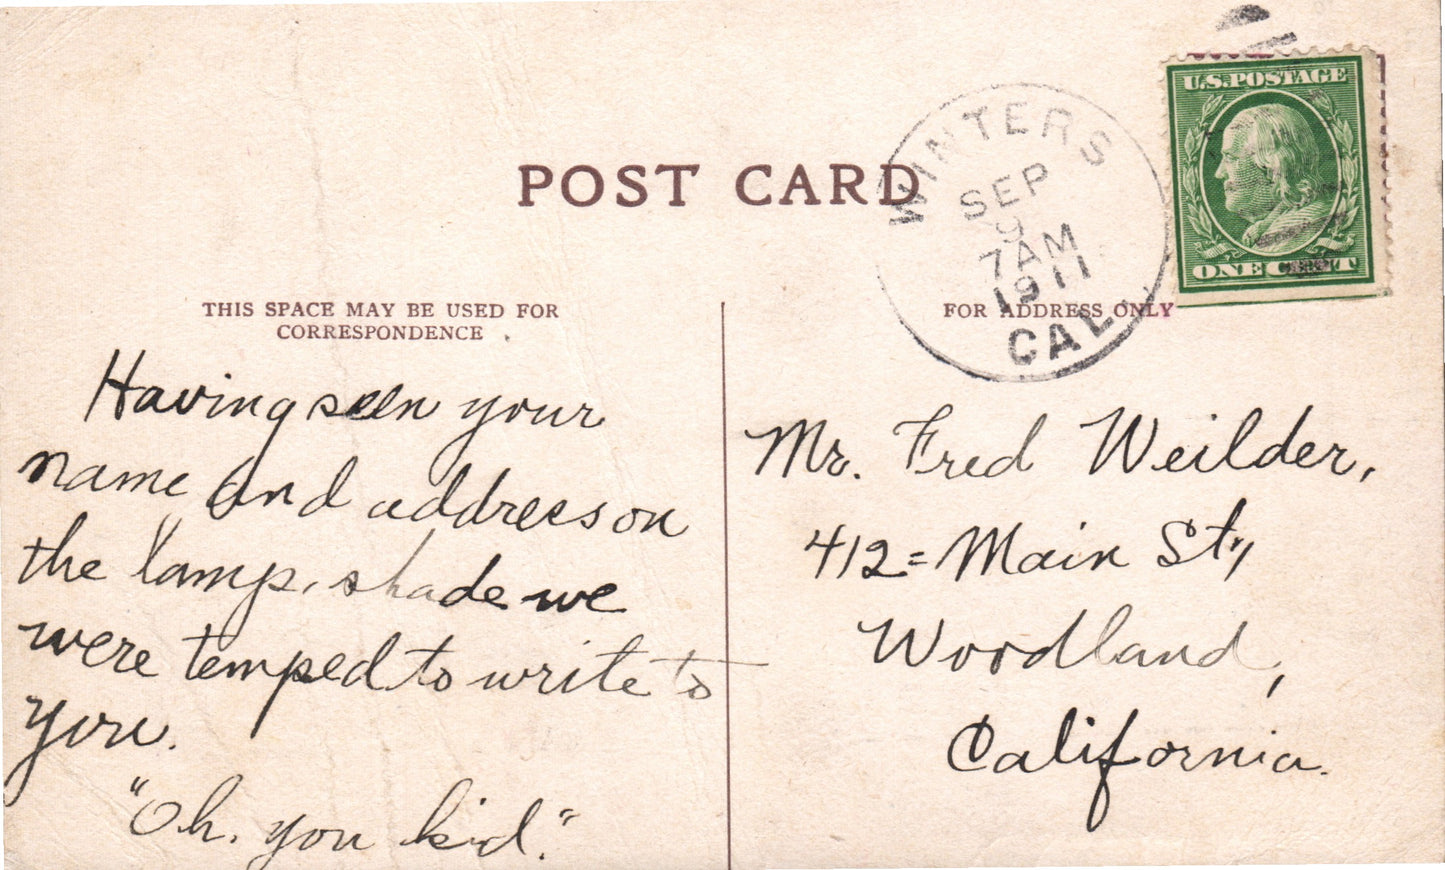 POST CARD
WINTERS
SEP
9
7AM
1911
CAL.
U.S. POSTAGE
ONE CENT
THIS SPACE MAY BE USED FOR
CORRESPONDENCE
Having seen your
name and address on
the lamp, shade we
were temped to write to
you.
"Oh, you kid."
FOR ADDRESS ONLY
Mr. Fred Weilder,
412 = Main St,,
Woodland,
California.